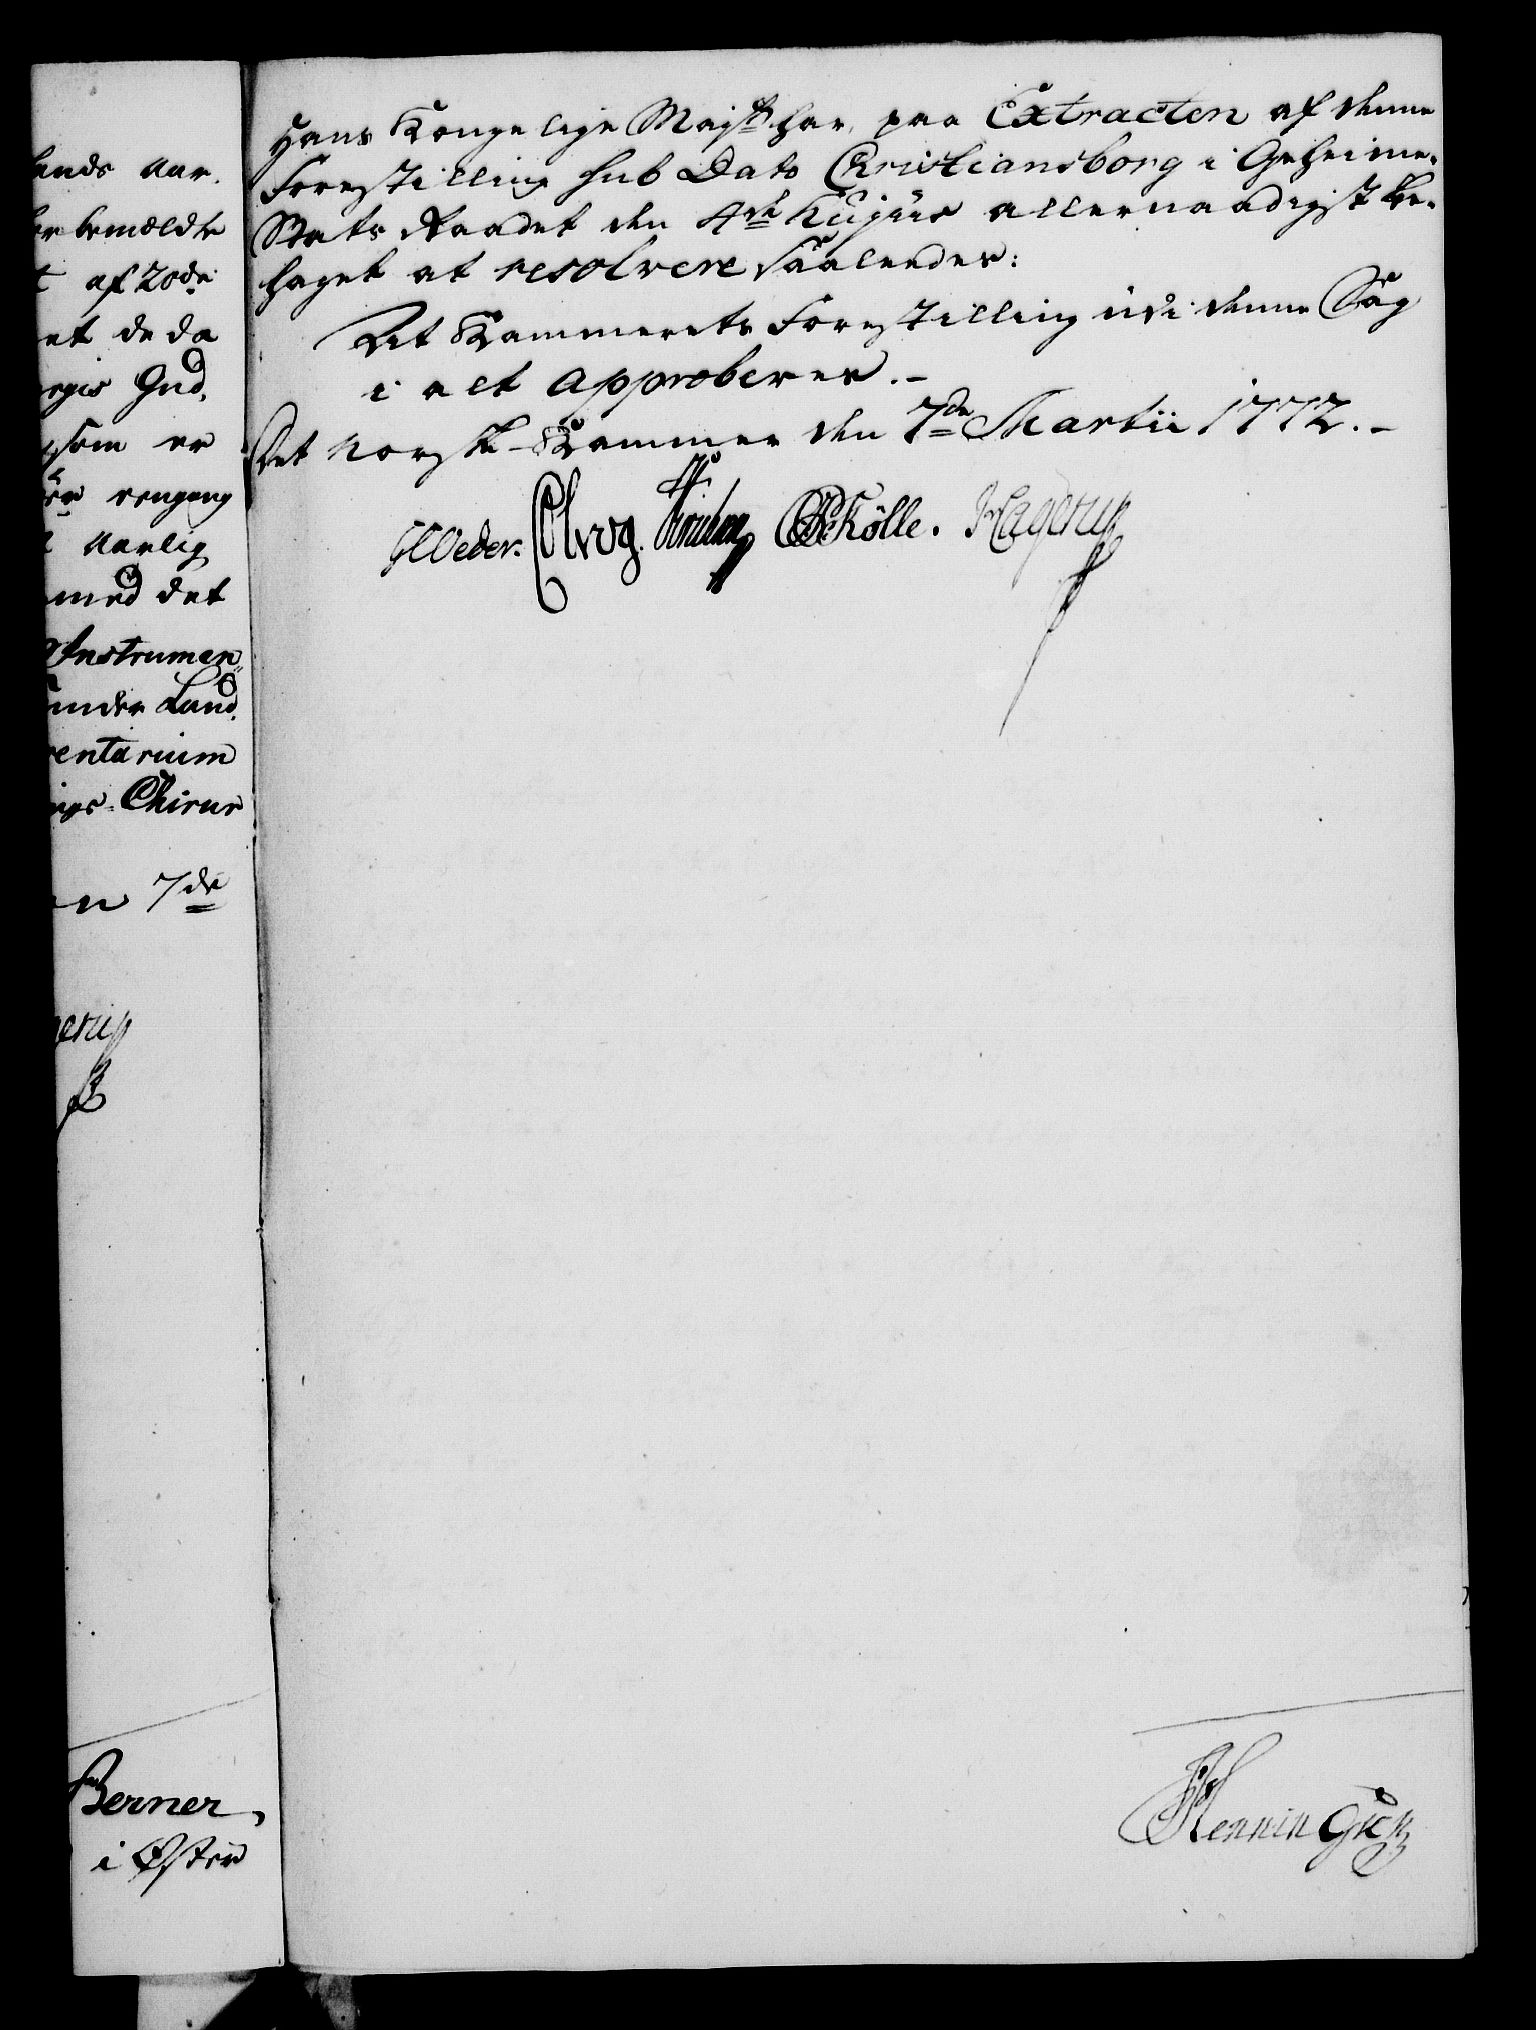 lands Aar,
bemældte
af 20de
et de da
Gud,
som er
eengang
Aarlig
med det
Instrumen„
under Land,
ventarium
Chirur
7de
gerup
Berner,
i Øster
Hans Kongelige Majst. har, paa Extracten af denne
Forestilling sub Dato Christiansborg i Geheime-
Stats Raadet den 4de hujus allernaadigst be-
haget at resolvere saaledes:
Det Kammerets Forestilling udi denne Sag
i alt approberes.-
Det norske Kammer den 7de Martii 1772.-
Weder. Colrvg. Skölle. Hagerup
Henningsen